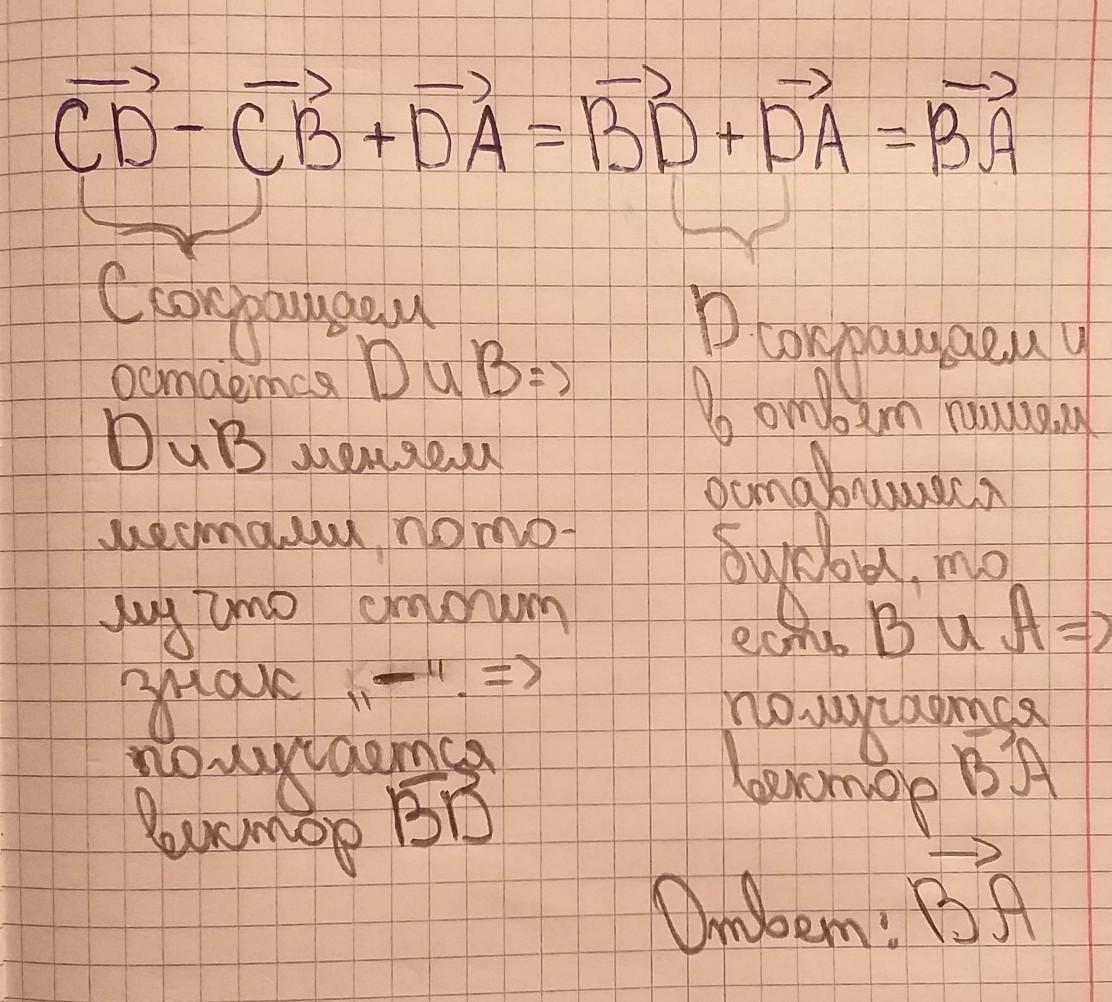 CD - CB + DA = BD + DA = BA
C сокращаем
остаётся D и B =>
D и B меняем
местами, пото-
му что стоит
знак „-". =>
получается
вектор BD
D сокращаем и
в ответ пишем
оставшиеся
буквы, то
есть B и A =>
получается
вектор BA
Ответ: BA